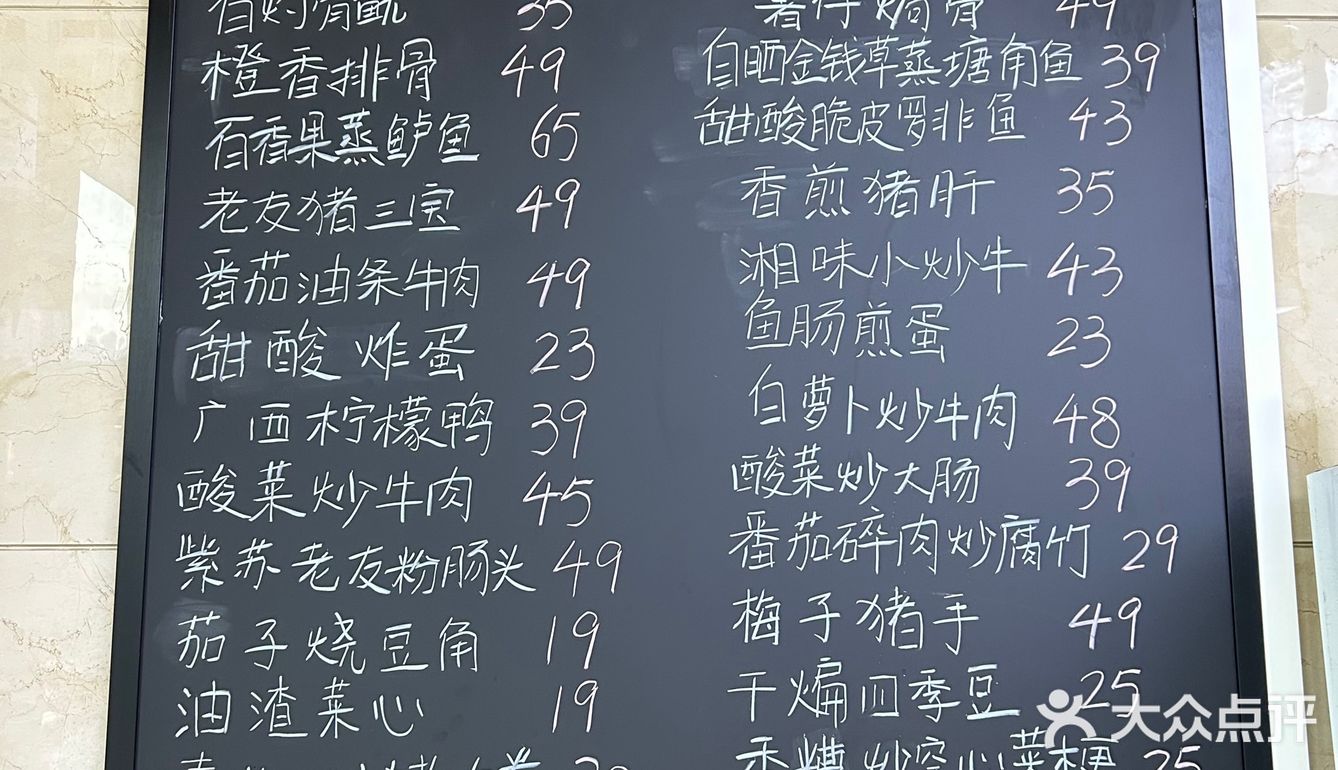 35
橙香排骨 49
百香果蒸鲈鱼 65
老友猪三宝 49
番茄油条牛肉 49
甜酸炸蛋 23
广西柠檬鸭 39
酸菜炒牛肉 45
紫苏老友粉肠头 49
茄子烧豆角 19
油渣菜心 19
薯仔焗骨 49
自晒金钱草蒸塘角鱼 39
甜酸脆皮罗非鱼 43
香煎猪肝 35
湘味小炒牛 43
鱼肠煎蛋 23
白萝卜炒牛肉 48
酸菜炒大肠 39
番茄碎肉炒腐竹 29
梅子猪手 49
干煸四季豆 25
炒空心菜梗 25
大众点评